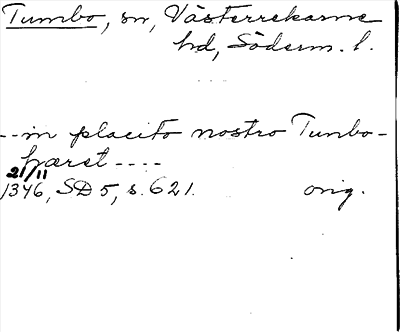 Tumbo, sn, Västerrekarne
hd, Söderm. l.
--in placito nostro Tumbo-
hæret ----
21/11
1346, SD 5, s. 621. orig.